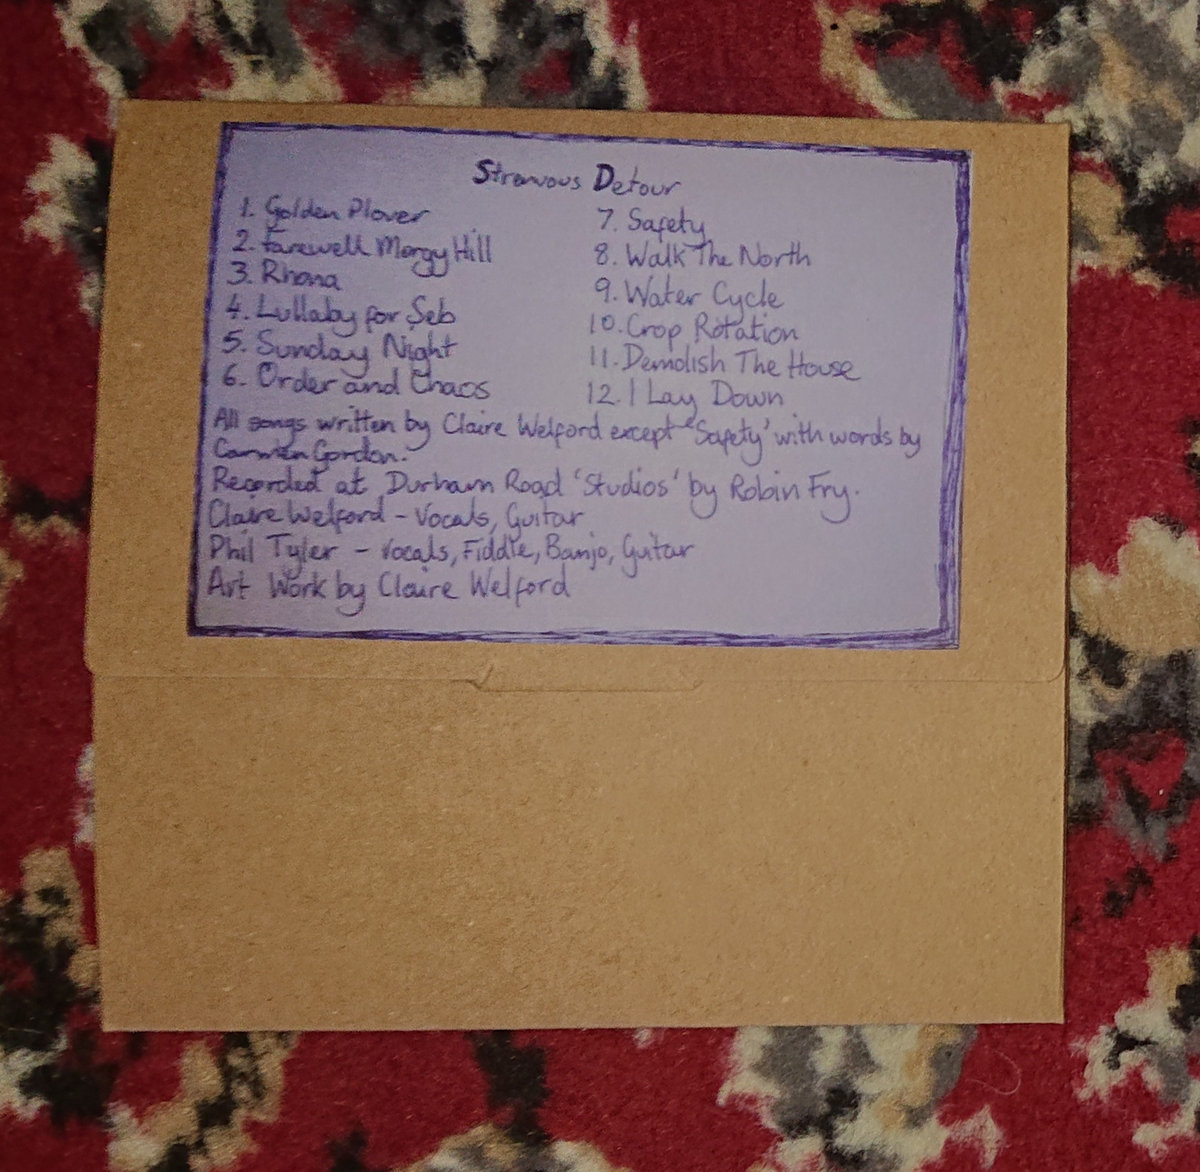 Strenuous Detour
1. Golden Plover
2. Farewell Morgy Hill
3. Rhona
4. Lullaby for Seb
5. Sunday Night
6. Order and Chaos
7. Safety
8. Walk The North
9. Water Cycle
10. Crop Rotation
11. Demolish The House
12. I Lay Down
All songs written by Claire Welford except 'Safety' with words by
Carmen Gordon.
Recorded at Durham Road 'Studios' by Robin Fry.
Claire Welford - Vocals, Guitar
Phil Tyler - Vocals, Fiddle, Banjo, Guitar
Art Work by Claire Welford